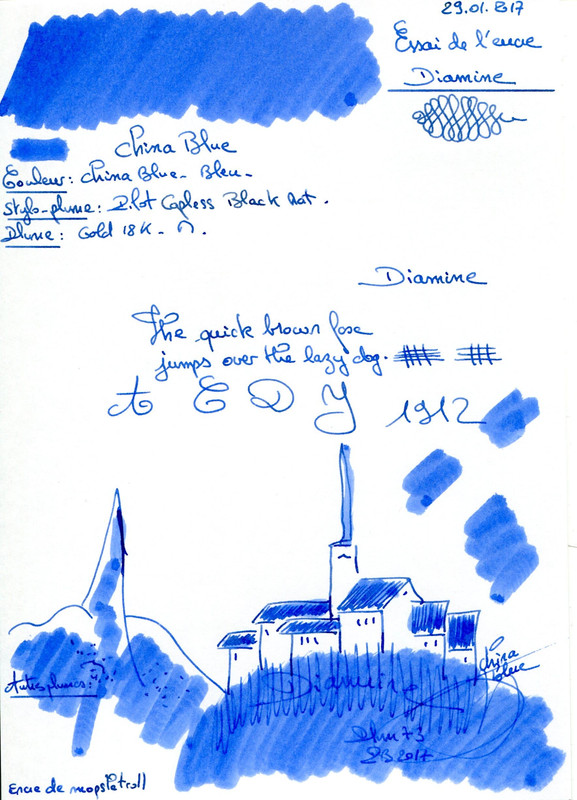 29.01.2017
Essai de l'encre
Diamine
China Blue
Couleur: China Blue - Bleu -
Stylo-plume: Pilot Capless Black Mat.
Plume: Gold 18K - M.
Diamine
The quick brown fox
jumps over the lazy dog.
A E D Y 1912
China
Blue
Autres plumes:
Diamine
Phm73
2017
Encre de mopsletroll